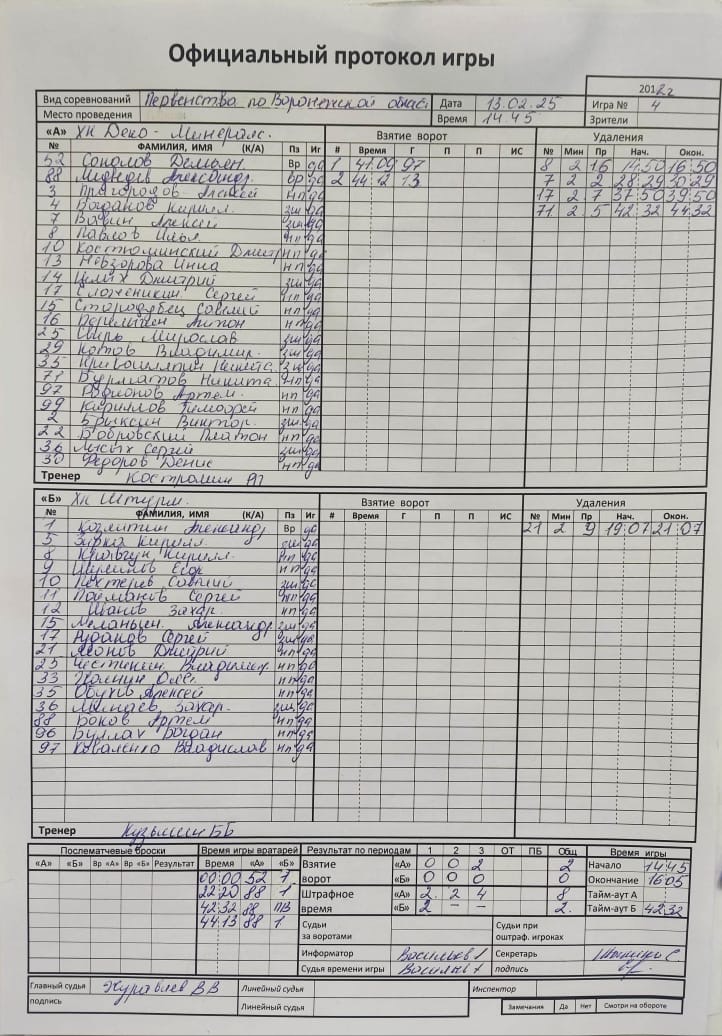 Официальный протокол игры
2012г
Вид соревнований Первенство по Воронежской области Дата 13.02.25 Игра № 4
Место проведения Время 14.45 Зрители
«А» ХК Деко-Минералс. Взятие ворот Удаления
№ ФАМИЛИЯ, ИМЯ (К/А) Пз Иг # Время Г П П ИС № Мин Пр Нач. Окон.
52 Соколов Демьян Вр да 1 41.09 97 8 2 16 14:50 16:50
88 Медведев Александр. Вр да 2 44 12 13 7 2 2 28:29 30:29
3 Алексей нп да 17 2 7 37:50 39:50
4 Кирилл. зщ да 71 2 5 42 32 44:32
7 Алексей зщ да
8 Павлов Илья. нп да
10 Костюминский Дмитр нп да
13 Невзорова Инна нп да
14 Дмитрий зщ да
17 Сергей нп да
15 Стародубец Савелий нп да
16 Антон нп да
25 Свирь Мирослав зщ да
29 Котов Владимир. зщ да
35 Никита. зщ да
71 Бурматов Никита нп да
97 Родионов Артем. нп да
99 Кириллов Тимофей нп да
2 Брыксин Виктор. зщ да
22 Бобровский Платон нп да
36 Лысых Сергей зщ да
30 Федоров Денис нп да
Тренер Костромин
«Б» ХК Штурм. Взятие ворот Удаления
№ ФАМИЛИЯ, ИМЯ (К/А) Пз Иг # Время Г П П ИС № Мин Пр Нач. Окон.
1 Александр Вр да 21 2 9 19:07 21:07
5 Зирка Кирилл. зщ да
8 Кравчук Кирилл. нп да
9 Егор нп да
10 Пехтерев Савелий зщ да
11 Сергей нп да
12 Иванов Захар. нп да
15 Меланьин Александр зщ да
17 Рудаков Сергей зщ да
21 Леонов Дмитрий нп да
23 Владимир нп да
33 нп да
35 Обухов Алексей нп да
36 Мамаев Захар. зщ да
88 Боков Артем нп да
96 Буллах Богдан нп да
97 Коваленко Владислав нп да
Тренер Кузьмин ББ
Послематчевые броски Время игры вратарей Результат по периодам 1 2 3 ОТ ПБ Общ Время игры
«А» «Б» Вр «А» Вр «Б» Результат Время «А» «Б» Взятие ворот «А» 0 0 2 2 Начало 14:45
00:00 52 1 «Б» 0 0 0 0 Окончание 16:05
22:20 88 1 Штрафное время «А» 2 2 4 8 Тайм-аут А
42:32 88 ПВ «Б» 2 - - 2. Тайм-аут Б 42:32
44:13 88 1
Судьи за воротами Судьи при оштраф. игроках
Информатор Васильев Секретарь
Судья времени игры Васильев подпись
Главный судья Журавлев ВВ Линейный судья Инспектор
подпись Линейный судья Замечания Да Нет Смотри на обороте